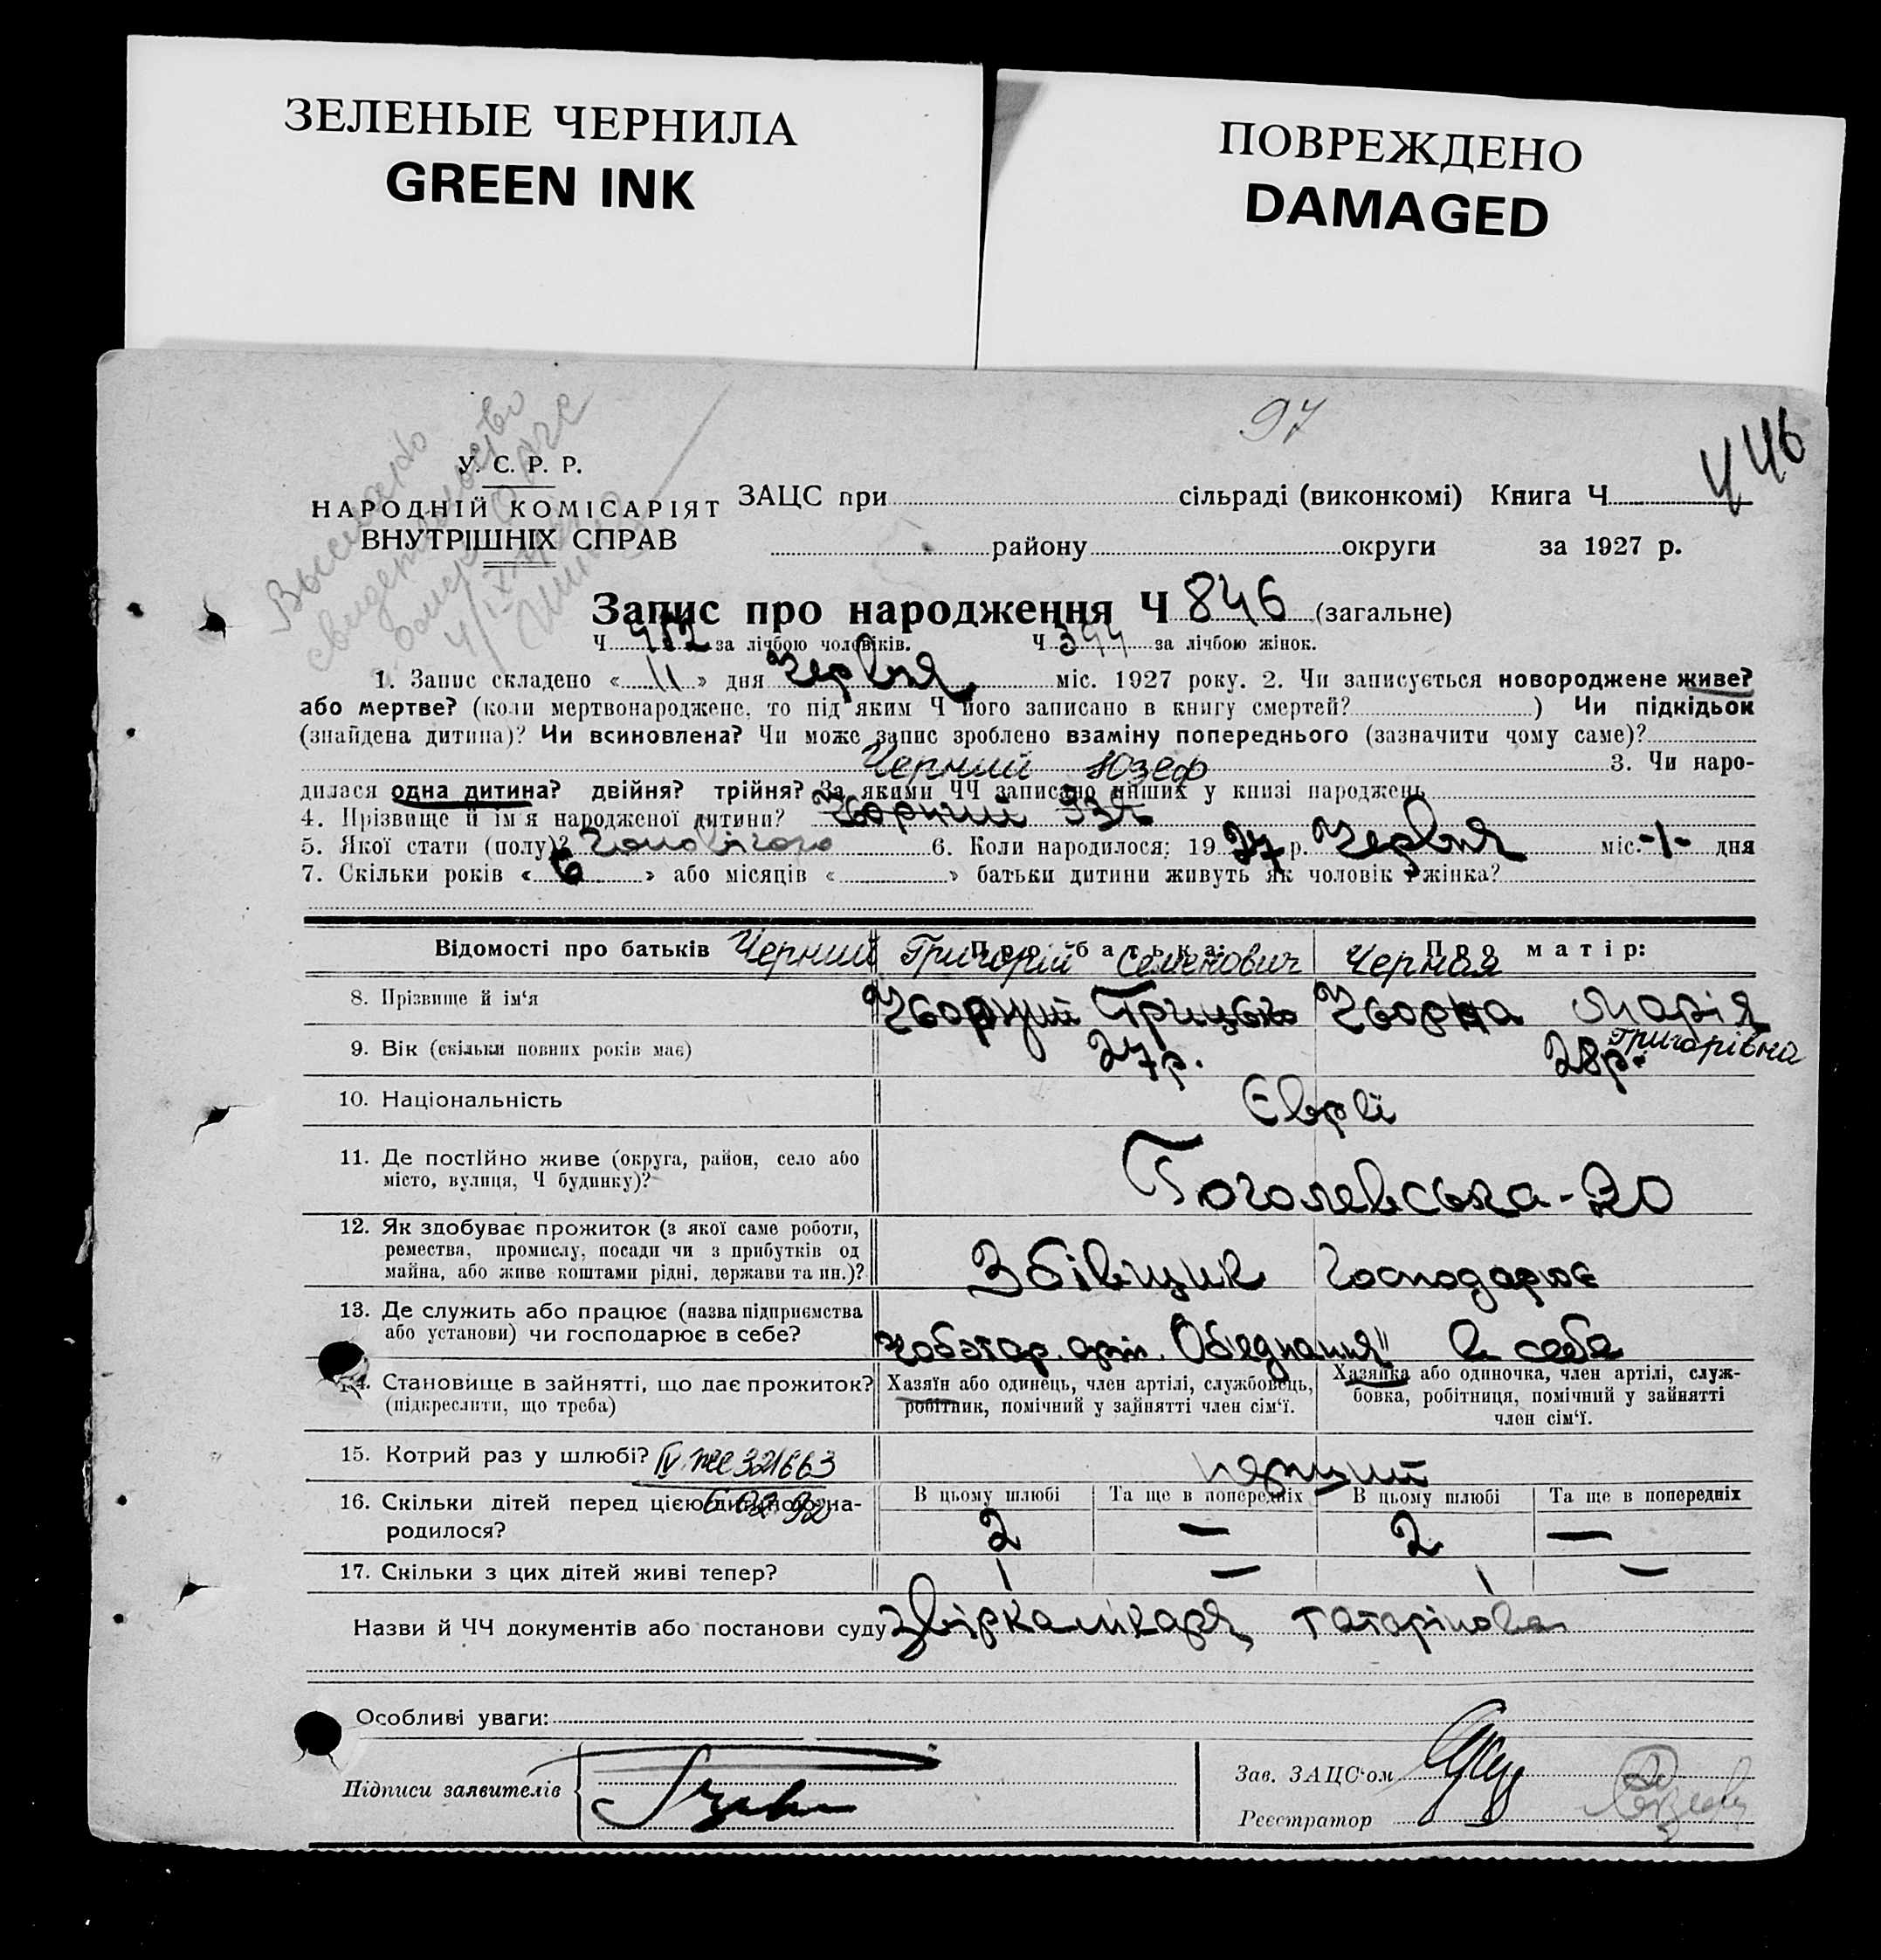 ЗЕЛЕНЫЕ ЧЕРНИЛА
GREEN INK
ПОВРЕЖДЕНО
DAMAGED
97
446
У. С. Р. Р.
НАРОДНІЙ КОМІСАРІЯТ
ВНУТРІШНІХ СПРАВ
ЗАЦС при сільраді (виконкомі) Книга Ч
району округи за 1927 р.
Запис про народження Ч 846 (загальне)
Ч 452 за лічбою чоловіків. Ч 394 за лічбою жінок.
1. Запис складено « 11 » дня червня міс. 1927 року. 2. Чи записується новороджене живе?
або мертве? (коли мертвонароджене, то під яким Ч його записано в книгу смертей? ) Чи підкідьок
(знайдена дитина)? Чи всиновлена? Чи може запис зроблено взаміну попереднього (зазначити чому саме)?
Черний Юзеф 3. Чи наро-
дилася одна дитина? двійня? трійня? За якими ЧЧ записано инших у книзі народжень
4. Прізвище й ім'я народженої дитини?
5. Якої стати (полу)? чоловічого 6. Коли народилося: 19 27 р. Червня міс. -1- дня
7. Скільки років « 6 » або місяців « » батьки дитини живуть як чоловік і жінка?
Відомості про батьків Про батька: Про матір:
Черний Григорій Семенович Черная
8. Прізвище й ім'я Чворний Грицько Чворна Марія
Григорівна
9. Вік (скільки повних років має) 27 р. 28 р.
10. Національність Євреї
11. Де постійно живе (округа, район, село або
місто, вулиця, Ч будинку)? Гоголевська - 20
12. Як здобуває прожиток (з якої саме роботи,
ремества, промислу, посади чи з прибутків од
майна, або живе коштами рідні, держави та ин.)? Збівщик Господарює
13. Де служить або працює (назва підприємства
або установи) чи господарює в себе? чоботар. арт. Об'єднання" в себе
14. Становище в зайнятті, що дає прожиток?
(підкреслити, що треба)
Хазяїн або одинець, член артілі, службовець,
робітник, помічний у зайнятті член сім'ї.
Хазяйка або одиночка, член артілі, служ-
бовка, робітниця, помічний у зайнятті
член сім'ї.
15. Котрий раз у шлюбі? перший
IV ЖС 321663
6 02 92
16. Скільки дітей перед цією дитиною на-
родилося?
В цьому шлюбі Та ще в попередніх В цьому шлюбі Та ще в попередніх
2 — 2 —
17. Скільки з цих дітей живі тепер? 1 — 1 —
Назви й ЧЧ документів або постанови суду звірка лікаря Татарінова
Особливі уваги:
Підписи заявителів
Зав. ЗАЦС'ом
Реєстратор